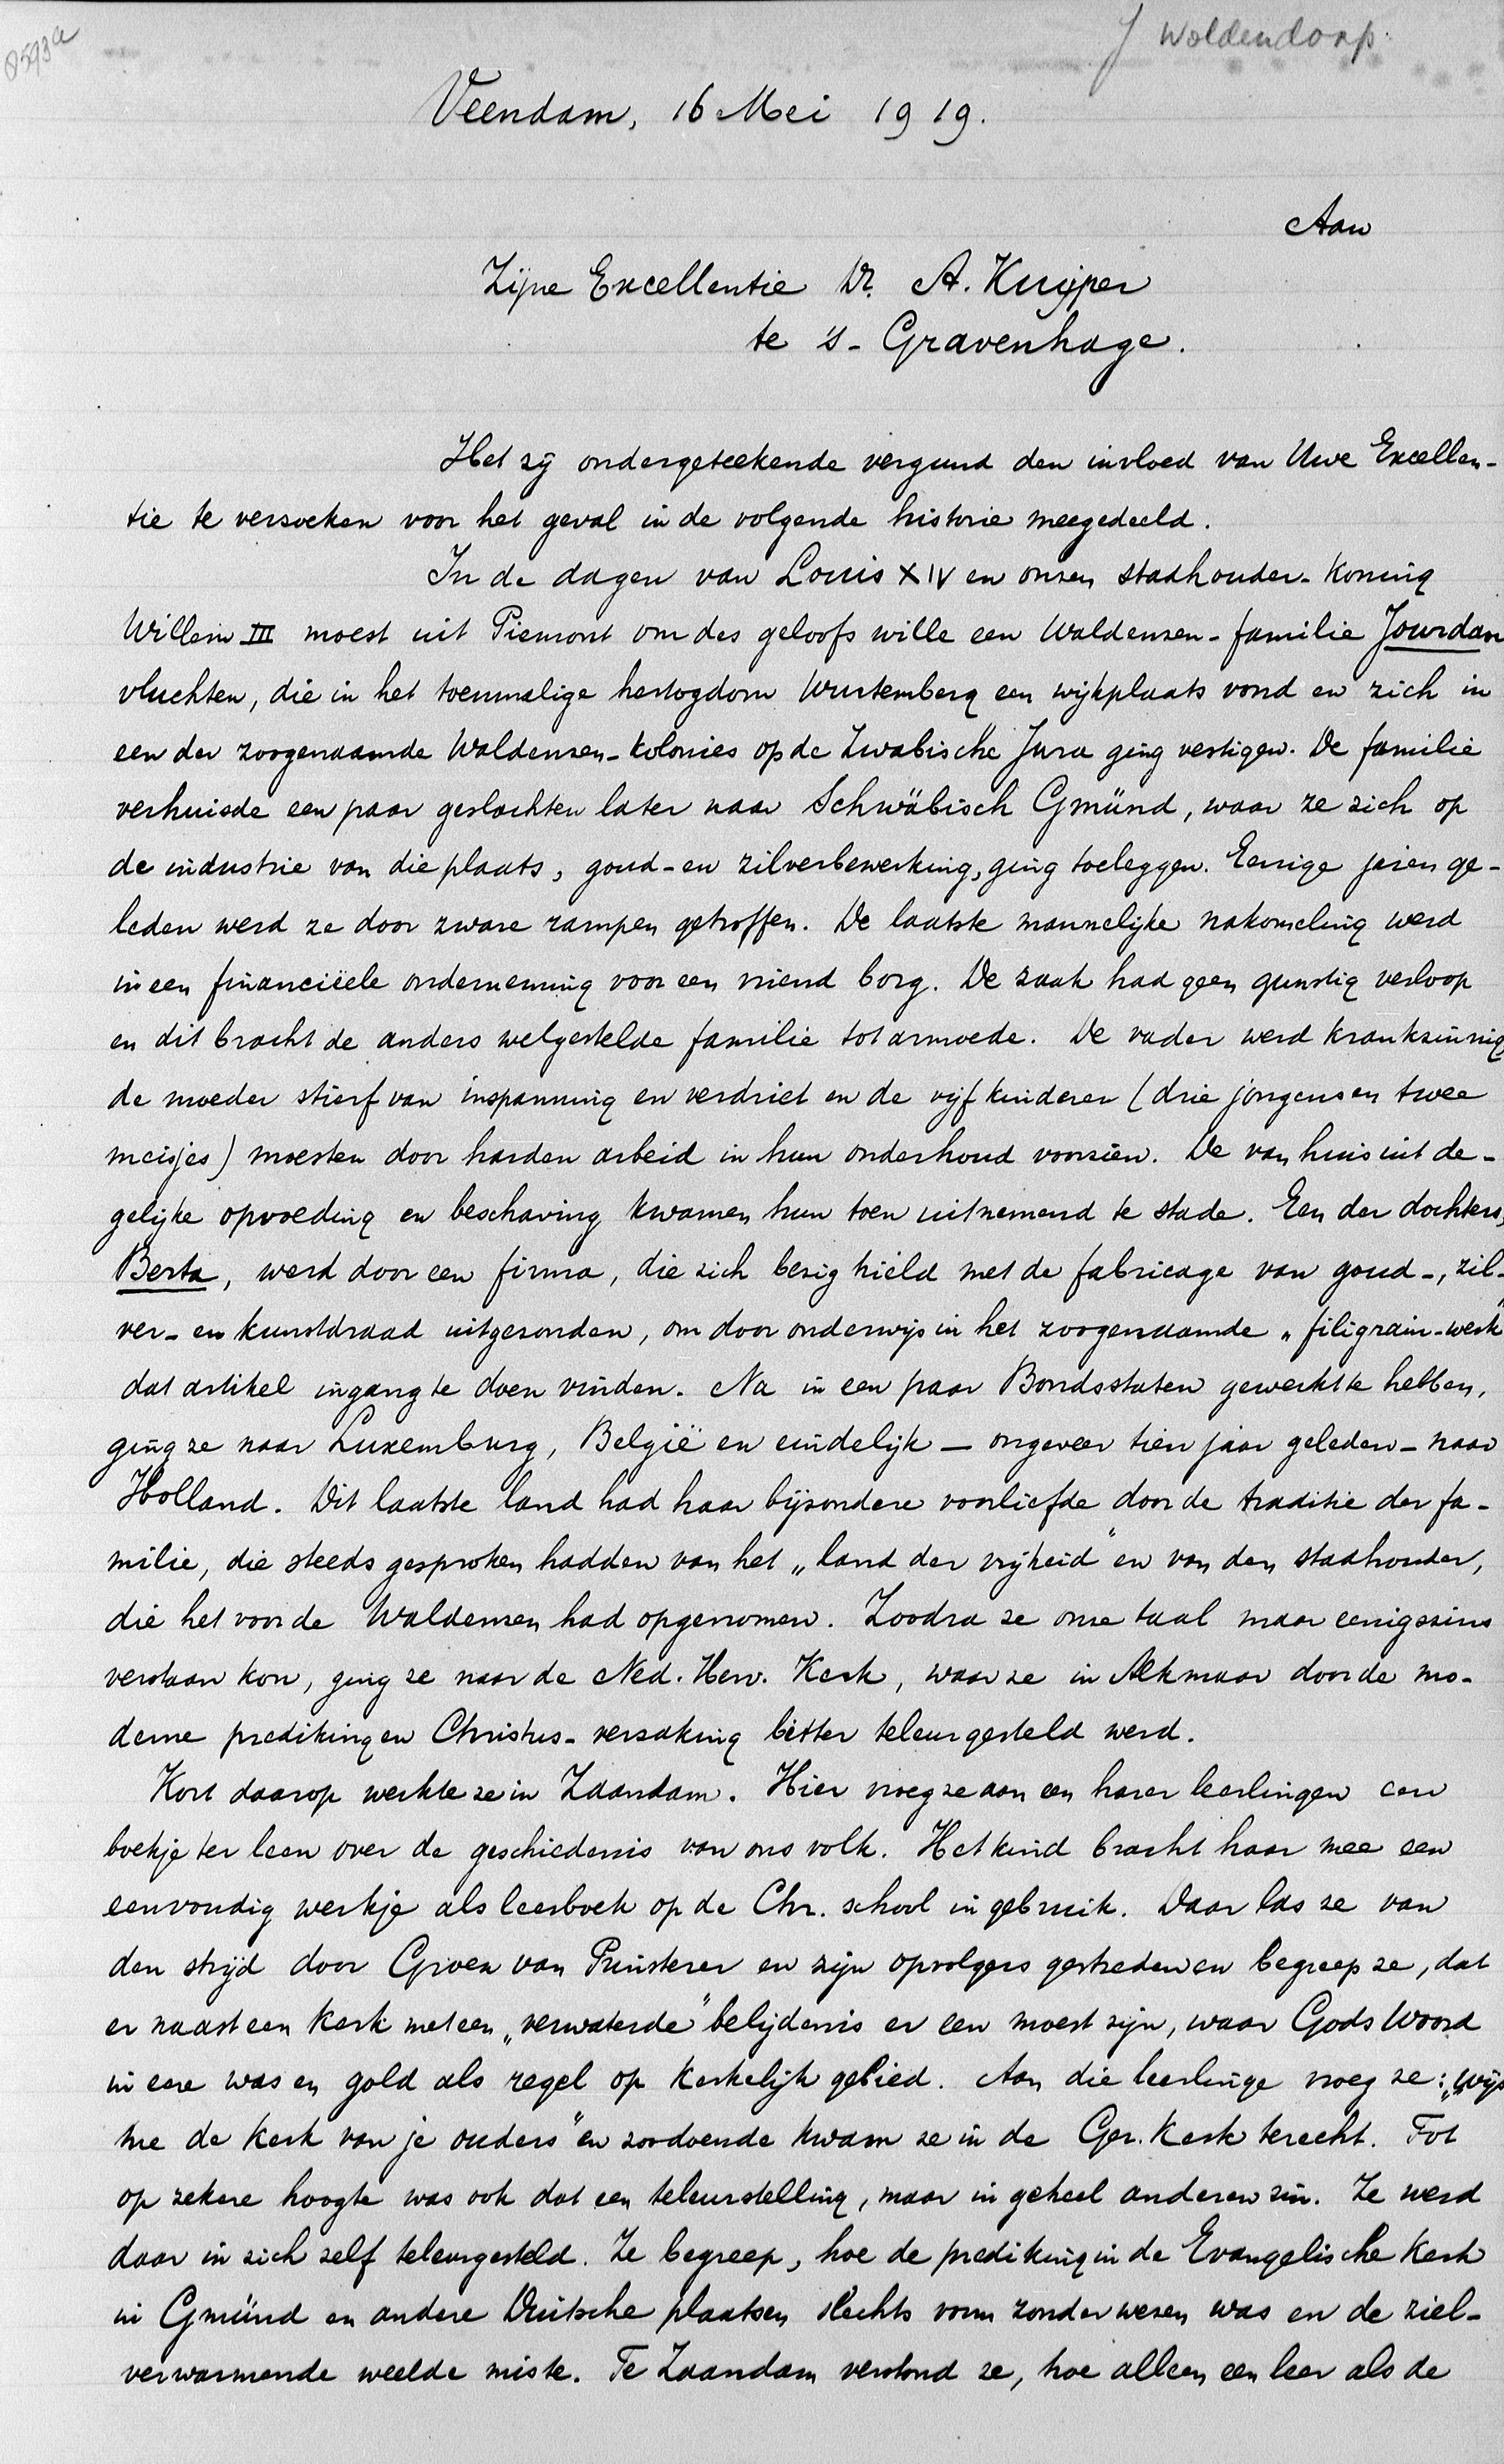 8593a
J Woldendorp.
Veendam, 16 Mei 1919.
Aan
Zijne Excellentie Dr. A. Kuijper
te 's-Gravenhage.
Het zij ondergeteekende vergund den invloed van Uwe Excellen-
tie te verzoeken voor het geval in de volgende historie meegedeeld.
In de dagen van Louis XIV en onzen stadhouder-koning
Willem III moest uit Piemont om des geloofs wille een Waldenzen-familie Jourdan
vluchten, die in het toenmalige hertogdom Wurtemberg een wijkplaats vond en zich in
een der zoogenaamde Waldenzen-kolonies op de Zwabische Jura ging vestigen. De familie
verhuisde een paar geslachten later naar Schwäbisch Gmünd, waar ze zich op
de industrie van die plaats, goud- en zilverbewerking, ging toeleggen. Eenige jaren ge-
leden werd ze door zware rampen getroffen. De laatste mannelijke nakomeling werd
in een financiëele onderneming voor een vriend borg. De zaak had geen gunstig verloop
en dit bracht de anders welgestelde familie tot armoede. De vader werd krankzinnig
de moeder stierf van inspanning en verdriet en de vijf kinderen (drie jongens en twee
meisjes) moesten door harden arbeid in hun onderhoud voorzien. De van huis uit de-
gelijke opvoeding en beschaving kwamen hun toen uitnemend te stade. Een der dochters,
Berta, werd door een firma, die zich bezig hield met de fabricage van goud-, zil-
ver- en kunstdraad uitgezonden, om door onderwijs in het zoogenaamde „filigrain-werk"
dat artikel ingang te doen vinden. Na in een paar Bondsstaten gewerkt te hebben,
ging ze naar Luxemburg, België en eindelijk — ongeveer tien jaar geleden — naar
Holland. Dit laatste land had haar bijzondere voorliefde door de traditie der fa-
milie, die steeds gesproken hadden van het „land der vrijheid" en van den stadhouder,
die het voor de Waldenzen had opgenomen. Zoodra ze onze taal maar eenigszins
verstaan kon, ging ze naar de Ned. Herv. Kerk, waar ze in Alkmaar door de mo-
derne prediking en Christus-verzaking bitter teleurgesteld werd.
Kort daarop werkte ze in Zaandam. Hier vroeg ze aan een harer leerlingen een
boekje ter leen over de geschiedenis van ons volk. Het kind bracht haar mee een
eenvoudig werkje als leerboek op de Chr. school in gebruik. Daar las ze van
den strijd door Groen van Prinsterer en zijn opvolgers gestreden en begreep ze, dat
er naast een kerk met een „verwaterde" belijdenis er een moest zijn, waar Gods Woord
in eere was en gold als regel op kerkelijk gebied. Aan die leerlinge vroeg ze: „Wijs
me de kerk van je ouders" en zoodoende kwam ze in de Ger. Kerk terecht. Tot
op zekere hoogte was ook dat een teleurstelling, maar in geheel anderen zin. Ze werd
daar in zich zelf teleurgesteld. Ze begreep, hoe de prediking in de Evangelische Kerk
in Gmünd en andere Duitsche plaatsen slechts vorm zonder wezen was en de ziel-
verwarmende weelde miste. Te Zaandam verstond ze, hoe alleen een leer als de